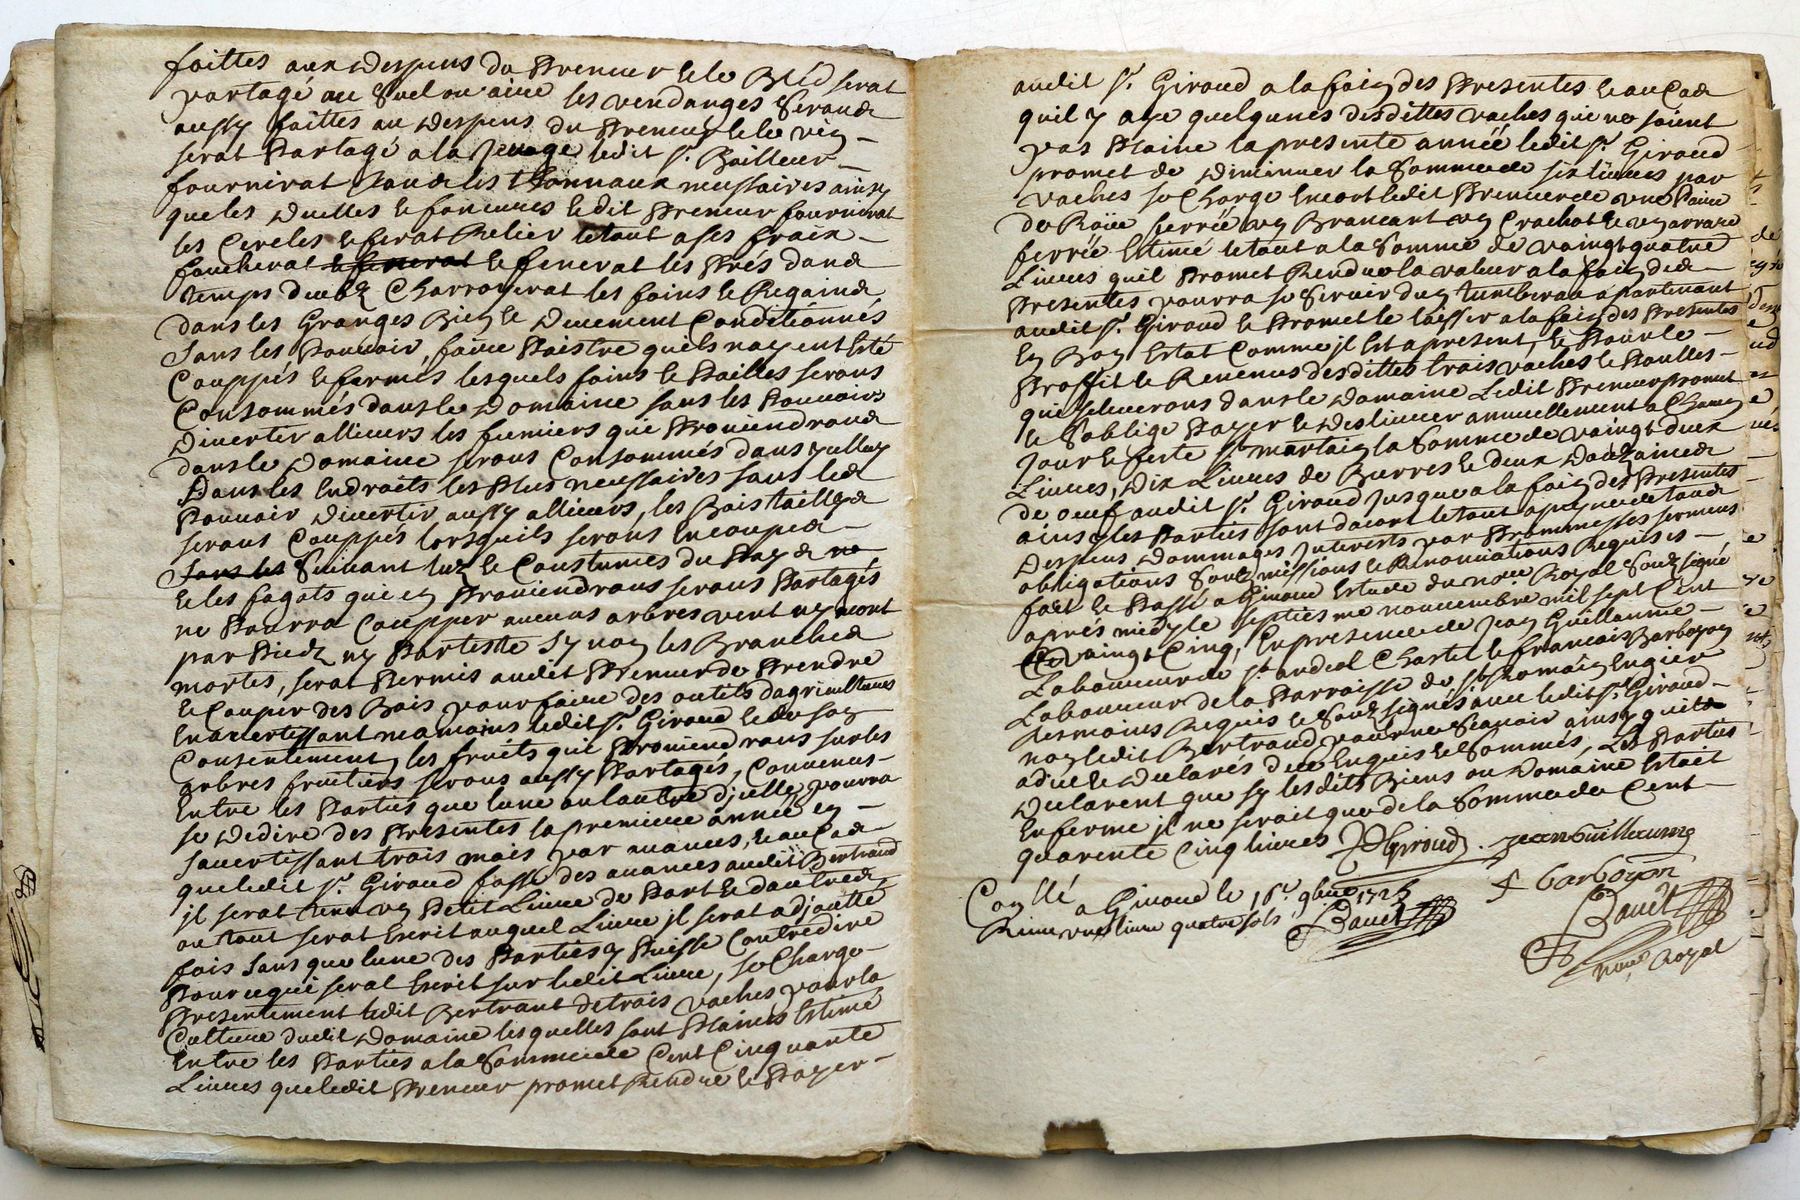 faittes aux Despens du Preneur & le Bléd serat
partagé au Suel ou aire les vendanges Seronds
aussy faittes au Despens du Preneur & le vin
serat Partagé a la ledit Sr. Bailleur
fournirat tous les thonnaux nessaires ainsy
que les & ledit Preneur fournirat
les Cercles & ferat Relier le tout a ses fraix
faucherat & fenerat les Prés dans
temps Charroyerat les foins & Regains
dans les Granges Bien & Deuement Conditionnés
Sans les Pouvoir, faire Paistre quils nayent Esté
Couppés & fermés lesquels foins & Pailles serons
Consommés dans le Domaine sans les Pouvoir
Divertir allieurs les fumiers que Proviendrons
dans le Domaine serons Consommés dans
Dans les Endroits les Plus nessaires sans les
Pouvoir Divertir aussy allieurs, les Bois taillys
serons Couppés lorsquils serons En coupes
Suivant luz & Coustumes du Pays
& les fagots qui en Proviendrons serons Partagés
ne Pourra Coupper aucuns arbres vert ny mort
par Pied ny Par teste Synon les Branches
mortes, serat Permis audit Preneur de Prendre
& Couper des Bois pour faire des outils dagricultures
En avertissant neamoins ledit Sr. Giroud & de son
Consentement, les fruits qui Proviendrons sur les
arbres fruitiers serons aussy Partagés, Convenus
Entre les Parties que lune ou lautre dicelles pourra
se Dedire des Presentes la premiere année en
savertissant trois mois par avances, & au Cas
que ledit Sr. Giroud fasse des avances audit Bertrand
il serat tenu un Petit Livre de Part & dautres
ou tout serat Escrit auquel Livre il serat adjoutté
fois sans que lune des Parties y Puisse Contredire
Pour ce qui serat Escrit sur ledit Livre, se Charge
Presentement ledit Bertrant de trois vaches pour la
Culture dudit Domaine lesquelles sont Plaines Estimé
Entre les Parties a la Somme de Cent Cinquante
Livres que ledit Preneur promet Rendre & Payer
audit Sr. Giroud a la fin des Presentes & au Cas
quil y aye quelqunes desdittes vaches qui ne soient
pas Plaine la presente année ledit Sr. Giroud
promet de Diminuer la Somme de six livres par
vaches se Charge Encore ledit Preneur de une Paire
de Roüe ferrée un Brancant un Crachot & un arrare
ferrée Estimé le tout a la Somme de vaingt quatre
Livres quil Promet Rendre la valeur a la fin des
Presentes pourra se Servir dun tumberau apartenant
audit Sr. Giroud & Promet le laisser a la fin des Presentes
En Bon Estat Comme il Est apresent, & Pour le
Proffit & Revenus desdittes trois vaches & Poulles
qui seleverons dans le Domaine Ledit Preneur promet
& Soblige Payer & Deslivrer annuellement a Chaques
Jour & feste St. Martin la Somme de vaingt deux
Livres, Dix Livres de Burres & deux Douzaines
de oeuf audit Sr. Giroud Jusque a la fin des Presentes
ainsy les Parties sont dacort le tout a peyne de tous
Despens Dommages Interests par Prommesses sermens
obligations Soubzmissions & Renonciations Requises
fait & Passé a Estude du nore. Royal Soubzsigné
aprés midy le septiesme novembre mil sept Cent
vaingt Cinq, En presence de Jean Guillaume
Laboureur de St. andeol Chastel & francois Barboyon
Laboureur de la Parroisse de St. Romain
tesmoins Requis & Soubzsignés avec ledit Sr. Giroud
non ledit Bertrand pour ne Scavoir ainsy quil
a dit & Declarés de ce Enquis & Sommés, Les Parties
Declarent que sy lesdits Biens ou Domaine Estait
En ferme il ne serait que de la Somme de Cent
quarente Cinq livres Giroud. jean Guillaume
f barboyon
Con.llé a le 16e. 9bre 1725
une livre quatre sols Bauet
Bauet
nore. Royal